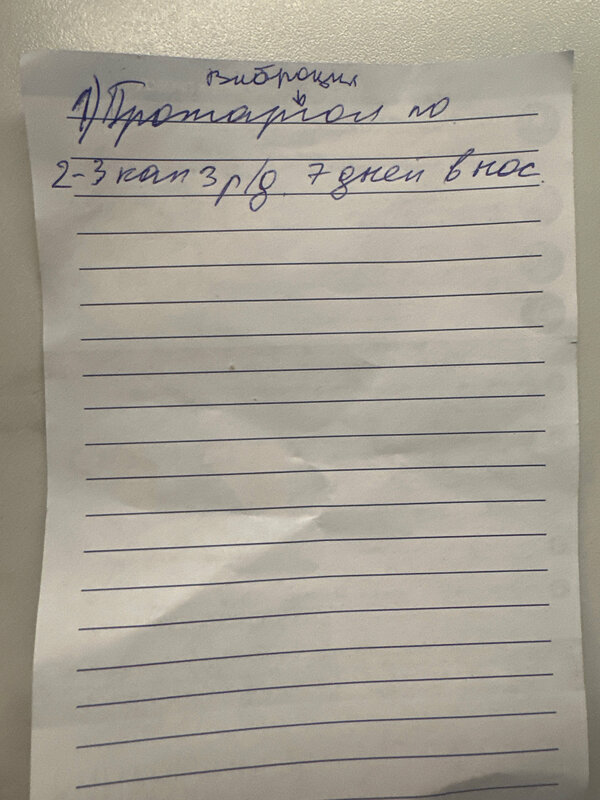 Вибрация
1) Протаргол по
2-3 кап 3 р/д. 7 дней в нос.